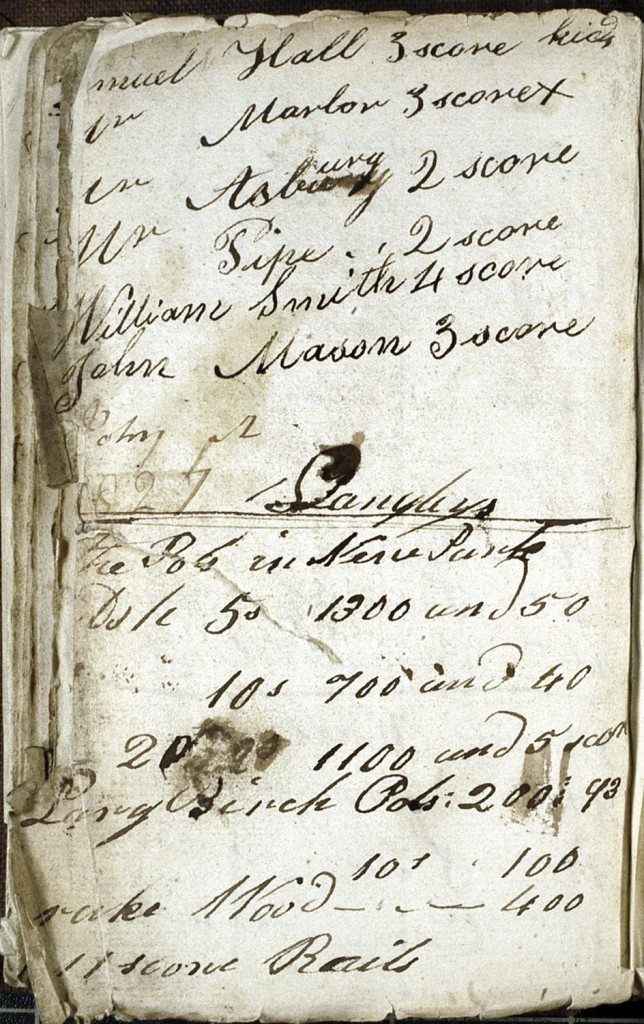 muel Hall 3 score kids
Mr Marlor 3 score x
Mr Asbury 2 score
Mr Pipe 2 score
William Smith 4 score
John Mason 3 score
John M
1827 Langleys
Pols in New Park
5s 1300 and 50
10s 700 and 40
20s 1100 and 5 score
Larg Birch Pols: 200: 93
10s 100
rake Wood - - - 400
score Rails